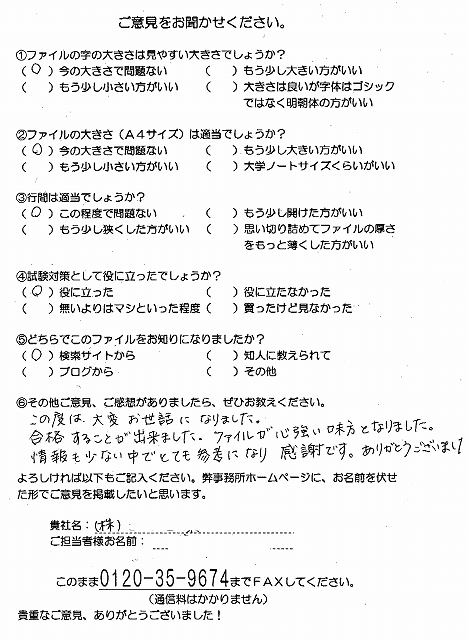 ご意見をお聞かせください。
①ファイルの字の大きさは見やすい大きさでしょうか？
（ ○ ）今の大きさで問題ない　（　　）もう少し大きい方がいい
（　　）もう少し小さい方がいい　（　　）大きさは良いが字体はゴシック
ではなく明朝体の方がいい
②ファイルの大きさ（A4サイズ）は適当でしょうか？
（ ○ ）今の大きさで問題ない　（　　）もう少し大きい方がいい
（　　）もう少し小さい方がいい　（　　）大学ノートサイズくらいがいい
③行間は適当でしょうか？
（ ○ ）この程度で問題ない　（　　）もう少し開けた方がいい
（　　）もう少し狭くした方がいい　（　　）思い切り詰めてファイルの厚さ
をもっと薄くした方がいい
④試験対策として役に立ったでしょうか？
（ ○ ）役に立った　（　　）役に立たなかった
（　　）無いよりはマシといった程度（　　）買ったけど見なかった
⑤どちらでこのファイルをお知りになりましたか？
（ ○ ）検索サイトから　（　　）知人に教えられて
（　　）ブログから　（　　）その他
⑥その他ご意見、ご感想がありましたら、ぜひお教えください。
この度は大変お世話になりました。
合格することが出来ました。ファイルが心強い味方となりました。
情報も少ない中でとても参考になり感謝です。ありがとうございまし
よろしければ以下もご記入ください。弊事務所ホームページに、お名前を伏せ
た形でご意見を掲載したいと思います。
貴社名：（株）
ご担当者様お名前：
このまま0120-35-9674までFAXしてください。
（通信料はかかりません）
貴重なご意見、ありがとうございました！